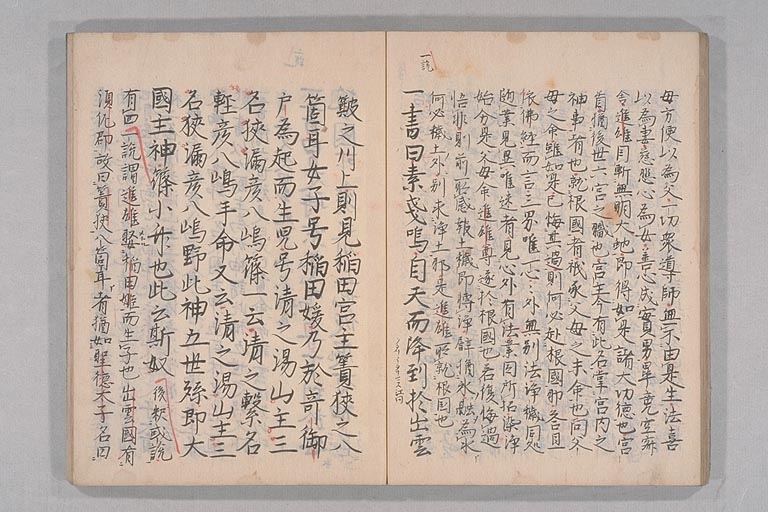 一説
母方便以為父一切衆導師無不由是生法喜
以為妻慈悲心為女善心成實男畢竟空寂
舎進雄自斬無明大虵即得如是諸大功徳也宮
首猶後世云宮之職也宮主今有此名掌宮内之
神事者也就根國者祇承父母之本命也問父
母之命雖如是已悔其過則何必赴根國耶答曰
依佛經而言三界唯一心心外無別法浄機同処
随業見異唯迷者見心外有法業因所招染浄
始分是父母命進雄尊遂於根國也若後悔過
悟非則前所感報土機即轉浄譬猶氷融為水
何必穢土外別求浄土耶是進雄所就根國也
一書曰素戔嗚自天而降到於出雲
簸之川上則見稲田宮主簀狭之八
箇耳女子号稲田媛乃於奇御
戸為起而生児号清之湯山主三
名狭漏彦八嶋篠一云清之繋名
軽彦八嶋手命又云清之湯山主三
名狭漏彦八嶋野此神五世孫即大
國主神篠小竹也此云斯奴
後救或説
有四一説謂進雄娶稲田姫而生子也出雲國有
須仇郡故曰簀狭八箇耳者猶如聖徳太子名曰